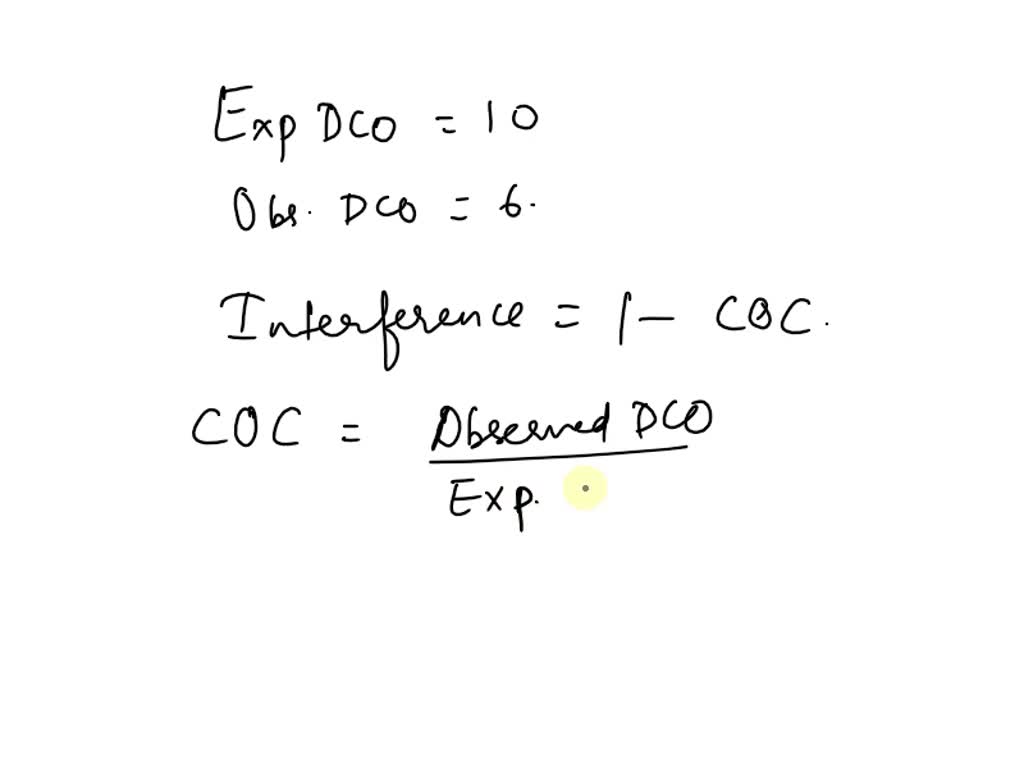 Exp DCO = 10
Obs. DCO = 6.
Interference = 1 - COC.
COC = Observed DCO
Exp.